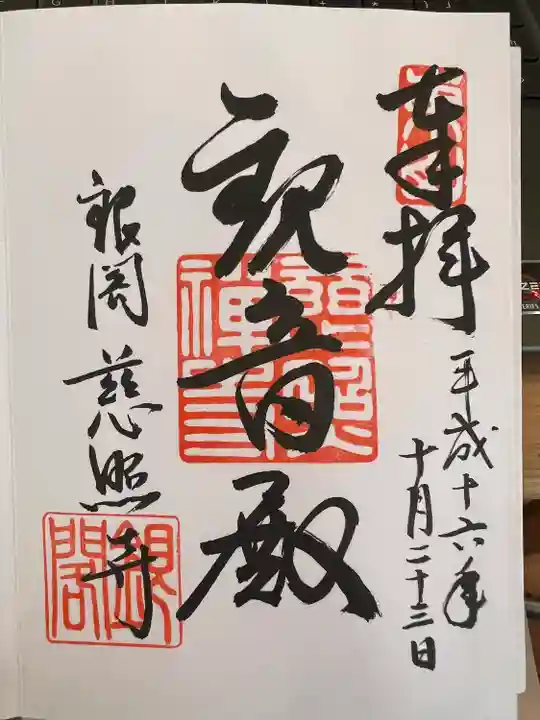 奉拝
平成十六年
十月二十三日
観音殿
銀閣 慈照寺
銀閣